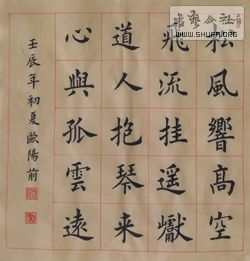 松風響高空
飛流挂遥巘
道人抱琴来
心與孤雲遠
壬辰年初夏歐陽前